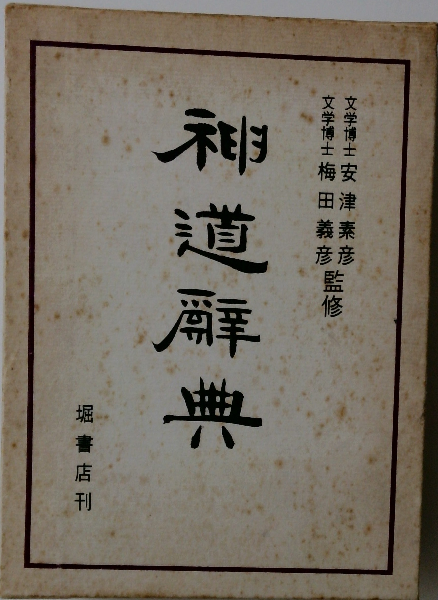 文学博士 安津素彦
文学博士 梅田義彦
監修
神道辭典
堀書店刊